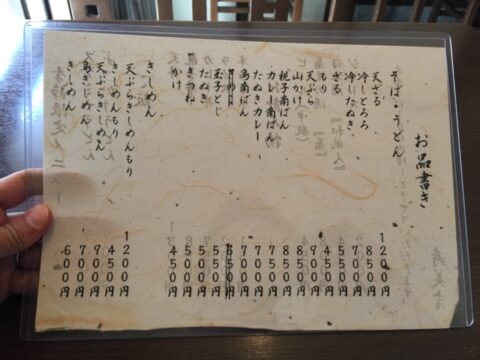 お品書き
そば・うどん
天ざる 1200円
冷しとろろ 850円
冷したぬき
ざる
もり 450円
天ぷら 900円
山かけ 850円
親子南ばん 850円
カレー南ばん 750円
たぬきカレー
鳥南ばん 700円
玉子とじ 550円
たぬき
きつね
かけ 450円
きしめん
天ぷらきしめんもり 1200円
きしめんもり 450円
天ぷらきしめん 900円
鳥きしめん 700円
きしめん 600円